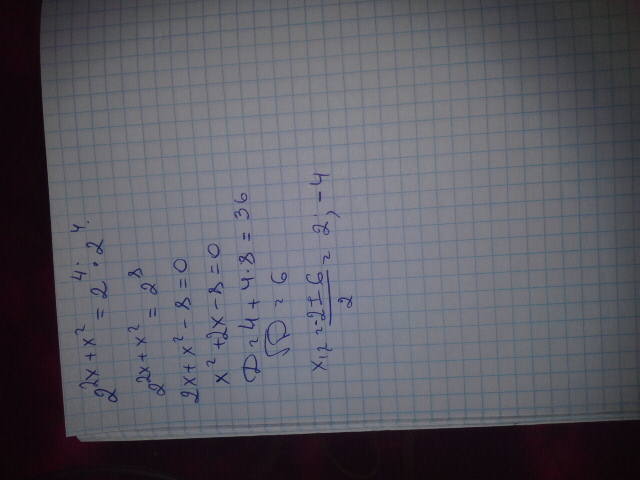 2^{2x+x^2} = 2^4 · 2^4.
2^{2x+x^2} = 2^8
2x+x^2-8=0
x^2+2x-8=0
D=4+4·8=36
√D = 6
x_{1,2}= \frac{-2±6}{2} = 2; -4